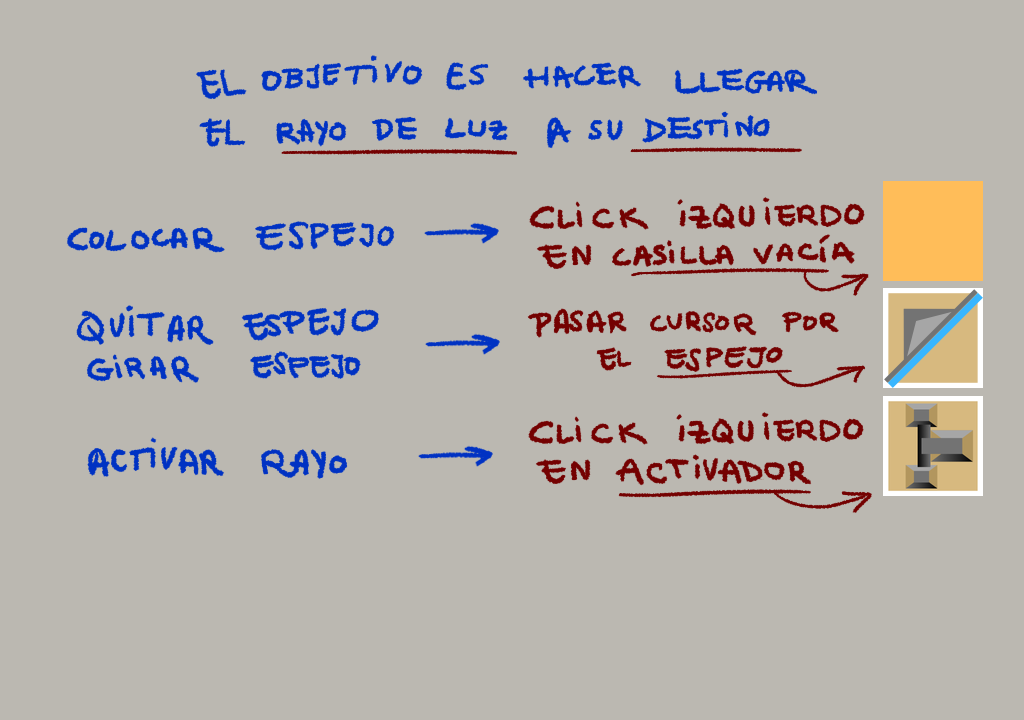 EL OBJETIVO ES HACER LLEGAR
EL RAYO DE LUZ A SU DESTINO
COLOCAR ESPEJO → CLICK IZQUIERDO
EN CASILLA VACÍA
QUITAR ESPEJO
GIRAR ESPEJO → PASAR CURSOR POR
EL ESPEJO
ACTIVAR RAYO → CLICK IZQUIERDO
EN ACTIVADOR